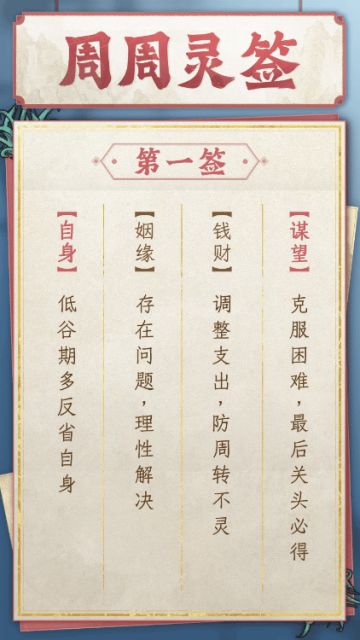 周周灵签
第一签
【谋望】
克服困难，最后关头必得
【钱财】
调整支出，防周转不灵
【姻缘】
存在问题，理性解决
【自身】
低谷期多反省自身